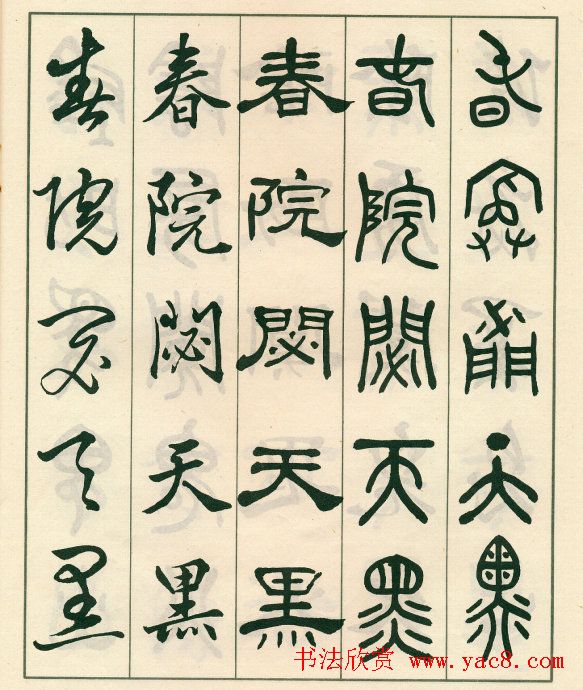 春院閟天黑
春院閟天黑
春院閟天黑
春院閟天黑
春院閟天黑
书法欣赏 www.yac8.com